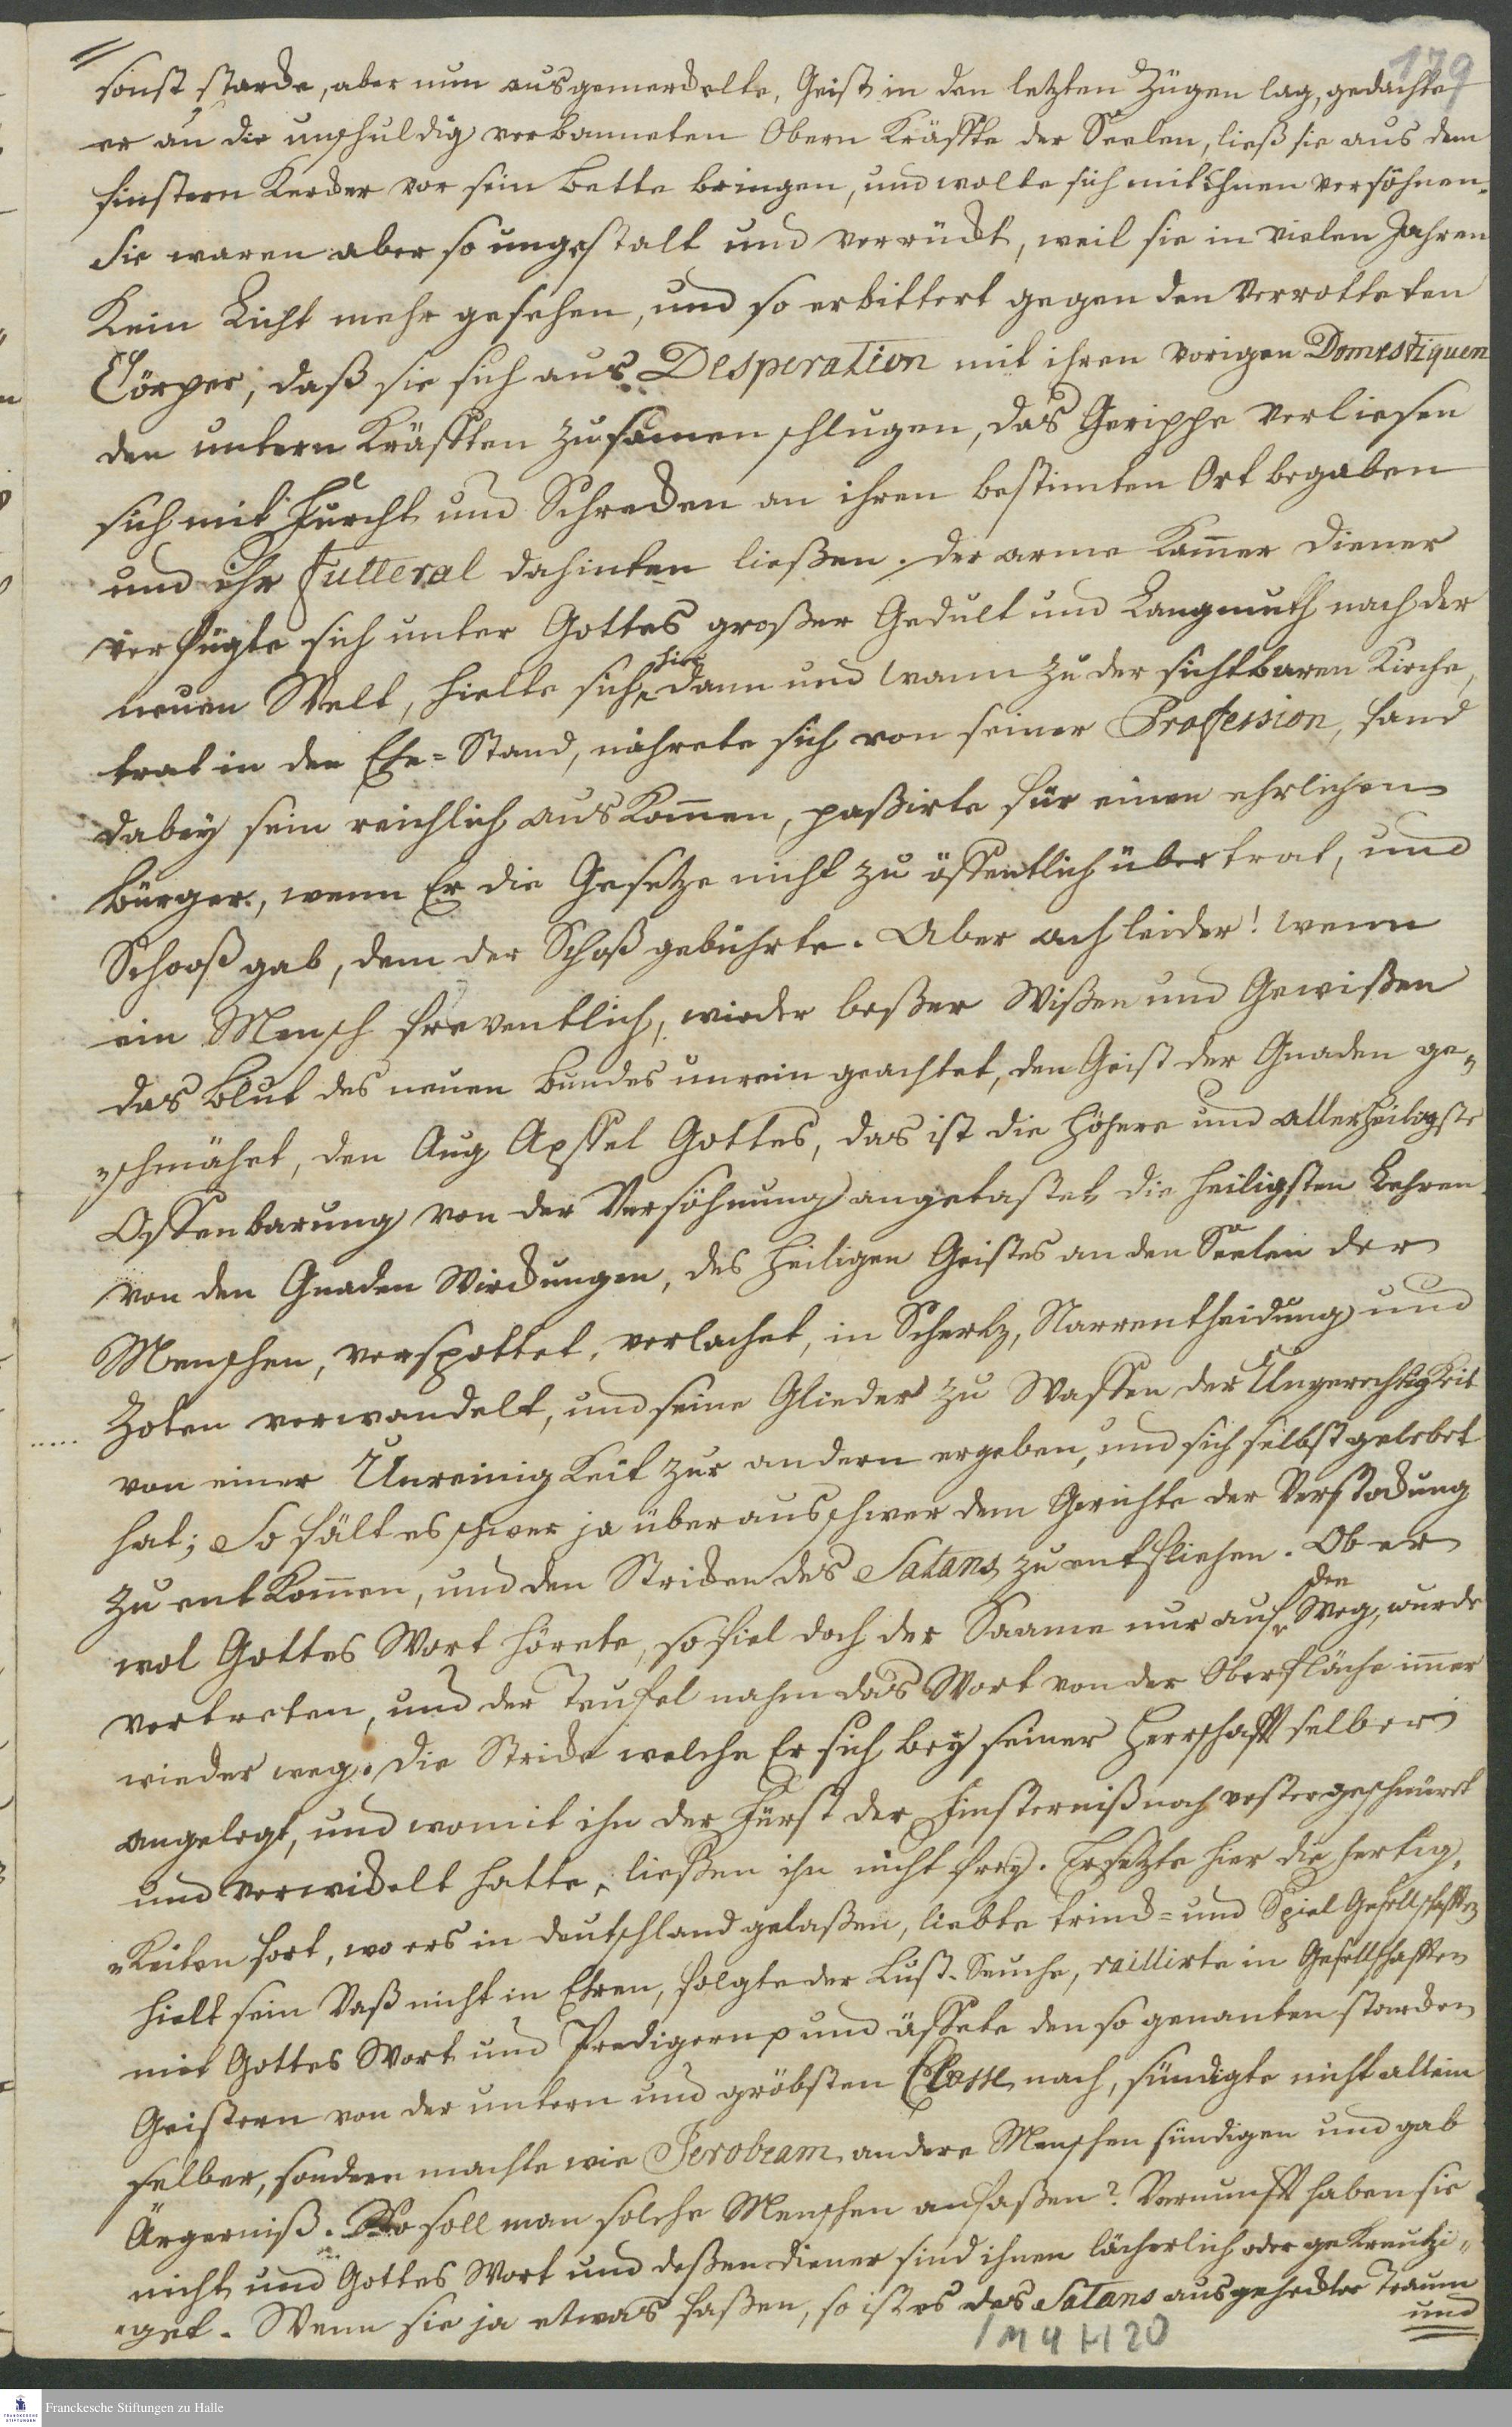 179
sonst starcke, aber nun ausgemerckelte, Geist in den letzten Zügen lag, gedachte
er an die unschuldig verbanneten Obern Kräffte der Seelen, ließ sie aus dem
finstern Kercker vor sein Bette bringen, und wolte sich mit Ihnen versöhnen.
Sie waren aber so ungestalt und verrückt, weil sie in vielen Jahren
Kein Licht mehr gesehen, und so erbittert gegen den verrotteten
Cörper, daß sie sich aus Desperation mit ihren vorigen Domestiquen
den untern Kräfften zusamen schlugen, das Gerippe verliesen
sich mit Furcht und Schrecken an ihren bestimten Ort begaben
und ihr Futteral dahinten ließen. Der arme Kamer Diener
verfügte sich unter Gottes großer Gedult und Langmuth nach der
neuen Welt, hielte sich hier dann und wann zu der sichtbaren Kirche,
trat in den Ehe=Stand, nährete sich von seiner Profession, fand
dabey sein reichlich auskomen, paßirte für einen ehrlichen
Bürger, wenn Er die Gesetze nicht zu öffentlich übertrat, und
Schooß gab, dem der Schoß gebührte. Aber ach leider! wenn
ein Mensch freventlich, wieder beßer Wißen und Gewißen
das Blut des neuen Bundes unrein geachtet, den Geist der Gnaden ge„
„schmähet, den Aug Apffel Gottes, das ist die Höhere und allerheiligste
Offenbarung von der Versöhnung angetastet die heiligsten Lehren
von den Gnaden Wirckungen, des heiligen Geistes an den Seelen der
Menschen, verspottet, verlachet, in Schertz, Narrentheidung und
Zoten verwandelt, und seine Glieder zu Waffen der Ungerechtigkeit
von einer Unreinigkeit zur andern ergeben, und sich selbst gelebet
hat; So fält es schwer ja überaus schwer dem Gerichte der Verstockung
zu entkomen, und den Stricken des Satans zu entfliehen. Ob er
wol Gottes Wort hörete, so fiel doch der Saame nur auf den Weg, wurde
vertreten, und der Teufel nahm das Wort von der Oberfläche imer
wieder weg. Die Stricke welche Er sich bey seiner Herrschafft selber
angelegt, und womit ihn der Fürst der Finsterniß noch vester geschnüret
und verwickelt hatte, ließen ihn nicht frey. Er setzte hier die fertig,
„Keiten fort, wo ers in Deutschland gelaßen, liebte trinck= und Spiel Gesellschafften
hielt sein Vaß nicht in Ehren, folgte der Lust-Seuche, raillirte in Gesellschafften
mit Gottes Wort und Predigern p und äffete den so genanten starcken
Geistern von der untern und gröbsten Classe nach, sündigte nicht allein
selber, sondern machte wie Jerobeam andere Menschen sündigen und gab
Ärgerniß. Wo soll man solche Menschen anfaßen? Vernunfft haben sie
nicht und Gottes Wort und deßen Diener sind ihnen lächerlich oder gekreutzi„
„get. Wenn sie ja etwas faßen, so ist es des Satans ausgeheckter Traum
und
1 M 4 H 20
Franckesche Stiftungen zu Halle